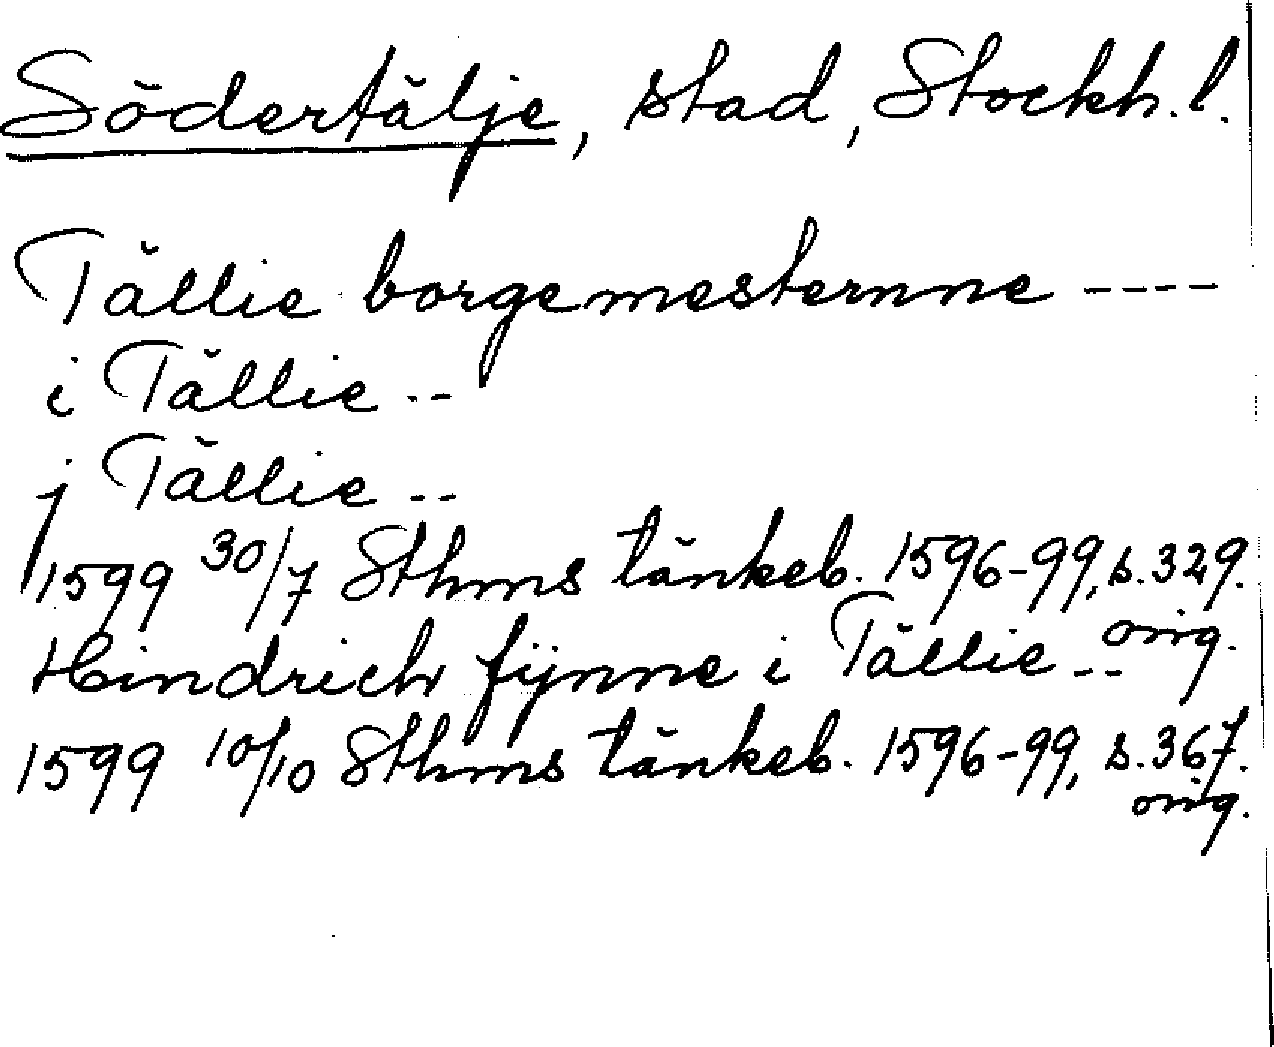 Södertälje, stad, Stockh. l.
Tällie borgemesternne ----
i Tällie --
j Tällie --
1599 30/7 Sthms tänkeb. 1596-99, s. 329.
orig.
Hindrich fijnne i Tällie --
1599 10/10 Sthms tänkeb. 1596-99, s. 367.
orig.